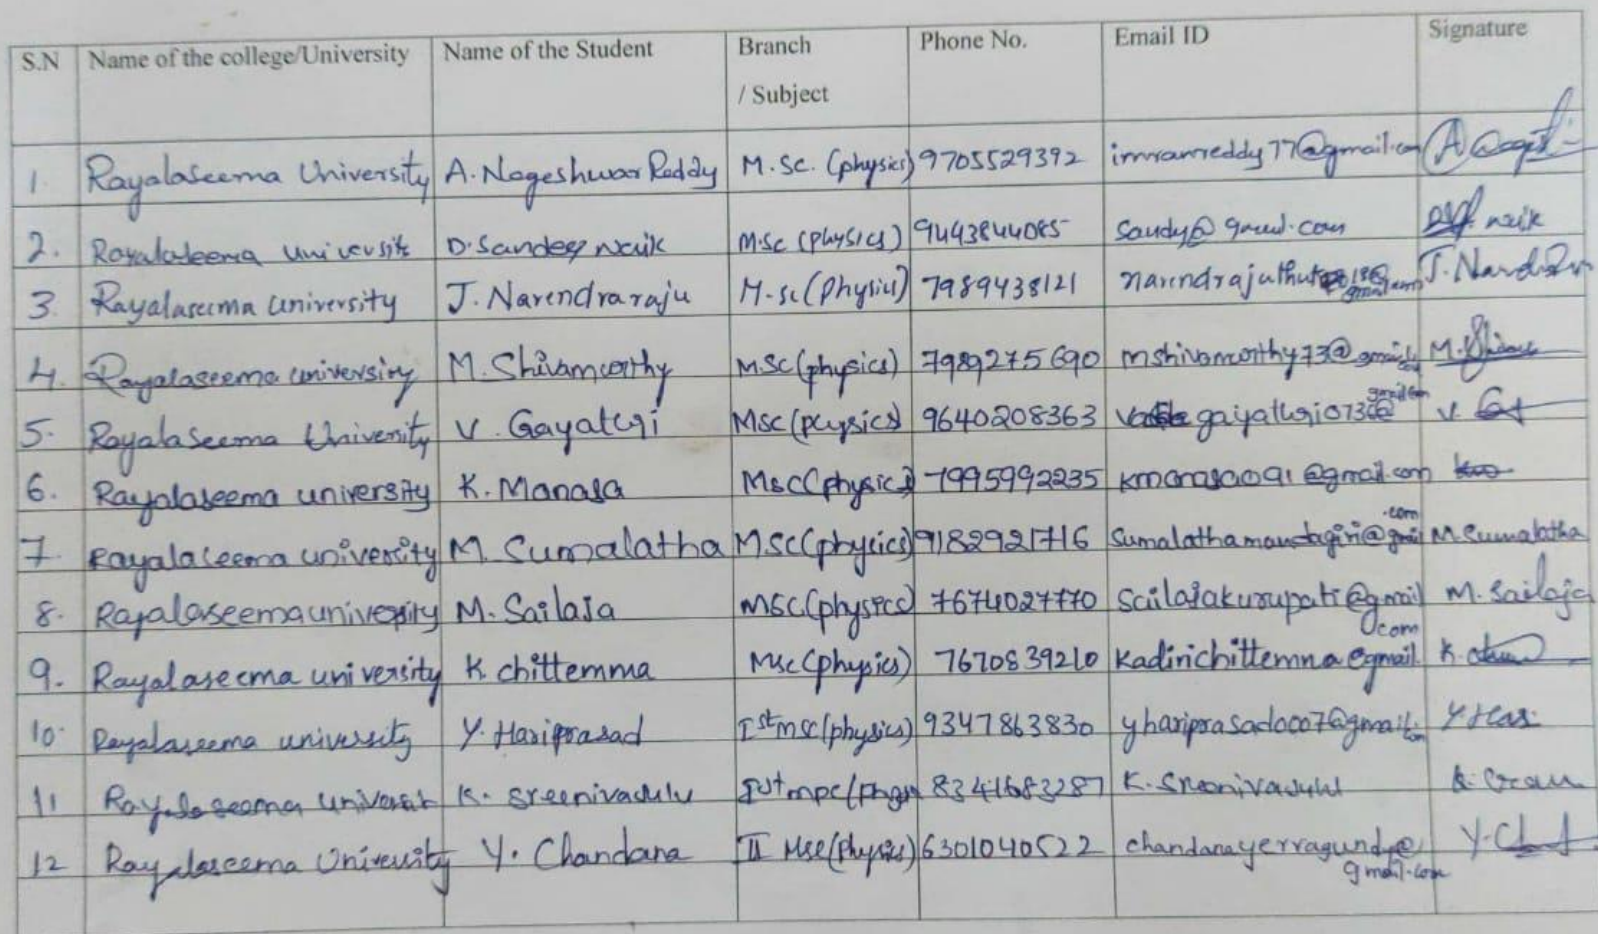 S.N Name of the college/University Name of the Student Branch / Subject Phone No. Email ID Signature
1. Rayalaseema University A. Nageshwar Reddy M.Sc. (physics) 9705529392 imranreddy77@gmail.com
2. Rayalaseema University D. Sandeep naik M.Sc (physics) 9443844085 Sandy@gmail.com naik
3. Rayalaseema university J. Narendra raju M.sc (Physics) 7989438121 gmail.com
4. Rayalaseema university M. Shivamoorthy M.Sc (physics) 7989275690 mshivamoorthy73@gmail.com
5. Rayalaseema University V. Gayatri Msc (physics) 9640208363 gayatri073@gmail.com V.
6. Rayalaseema university K. Manasa Msc (physics) 7995992235 kmanasa091@gmail.com
7. Rayalaseema university M. Sumalatha MSC (physics) 9182921716 M. Sumalatha
8. Rayalaseema university M. Sailaja MSC (physics) 7674027770 Sailajakurupati@gmail.com M. Sailaja
9. Rayalaseema university K chittemma Msc (physics) 7670839210 Kadirichittemma@gmail. K.
10. Rayalaseema university Y. Hariprasad Ist msc (physics) 9347863830 yhariprasad0007@gmail.com Y. Hari
11 Rayalaseema K. Sreenivasulu 8341683287 K. Sreenivasulu
12 Rayalaseema University Y. Chandana II Msc (Physics) 6301040522 chandanayerragund@gmail.com